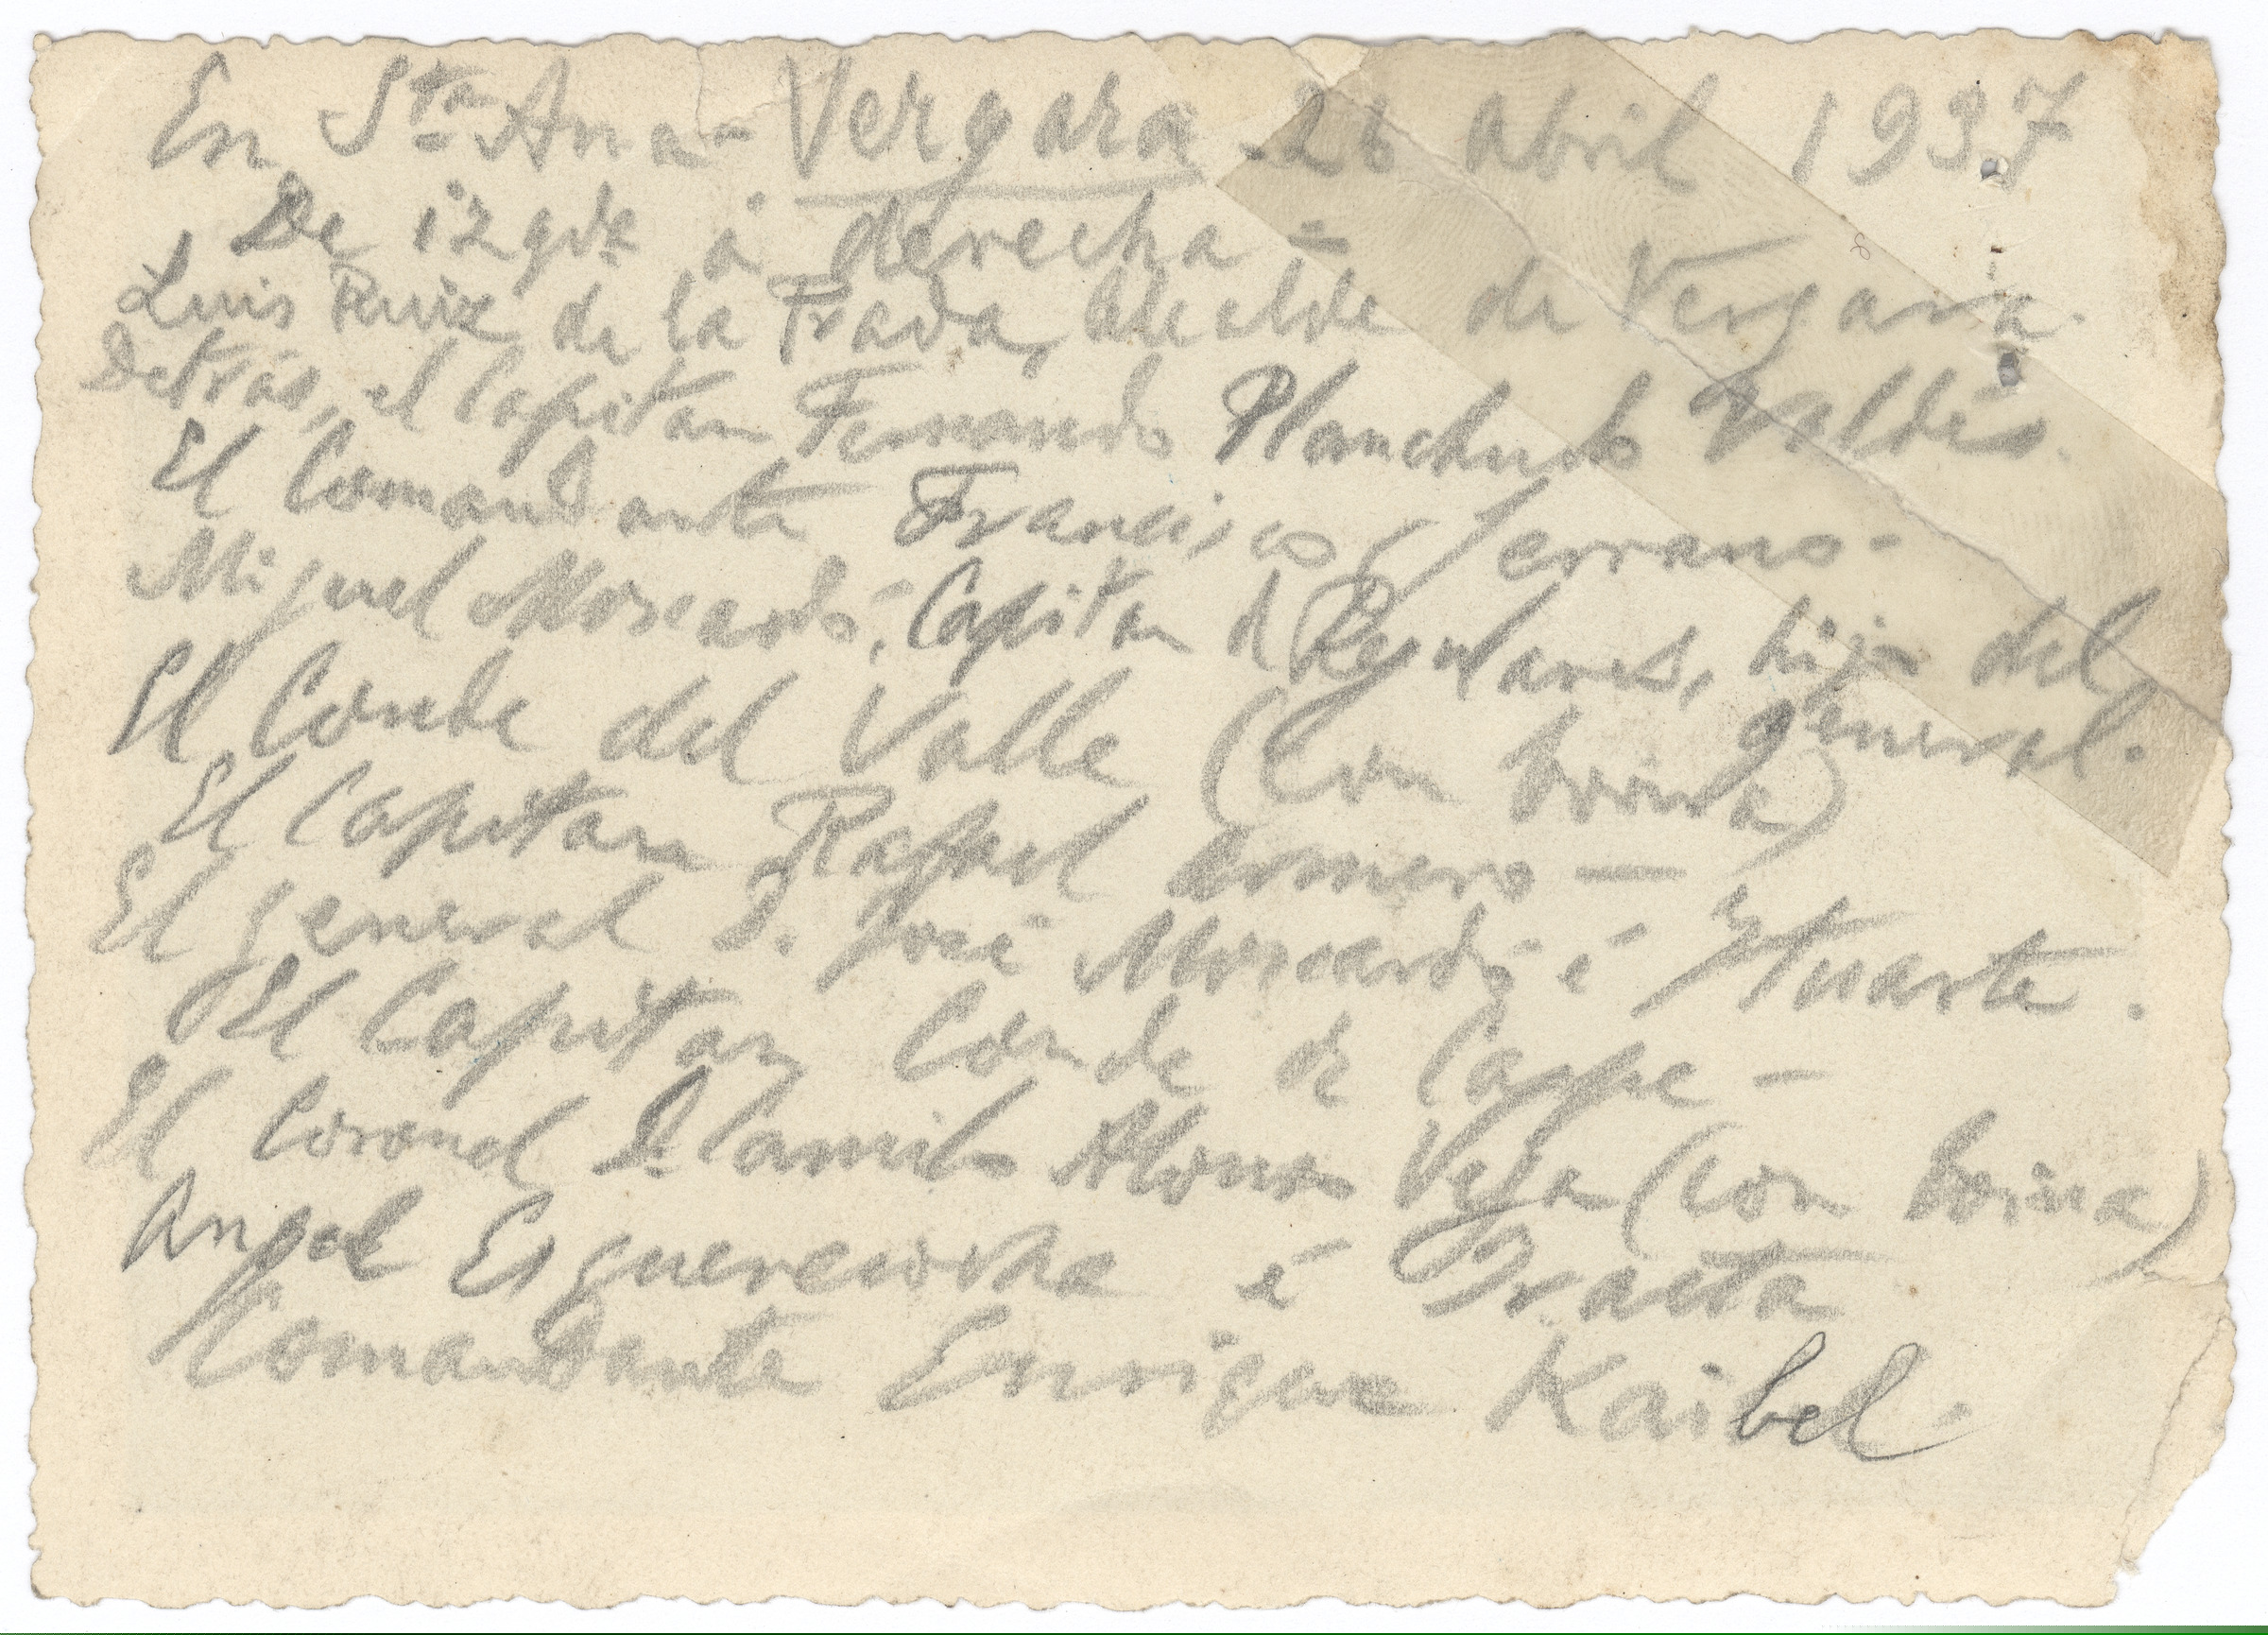 En Sta Ana - Vergara 26 abril 1937
De izqda a derecha =
Luis Ruiz de la Prada, Alcalde de Vergara.
Detrás, el Capitan Fernando Planchuelo Valdés.
El Comandante Francisco Serrano -
Miguel Moscardó, Capitan de Regulares, hijo del
general.
El Conde del Valle (con boina)
El Capitan Rafael Romero —
El general D. José Moscardó é Ituarte.
El Capitan Conde de Caspe —
El Coronel D. Camilo Alonso Vega (con boina)
Angel é Iraeta
Comandante Enrique Kaibel.